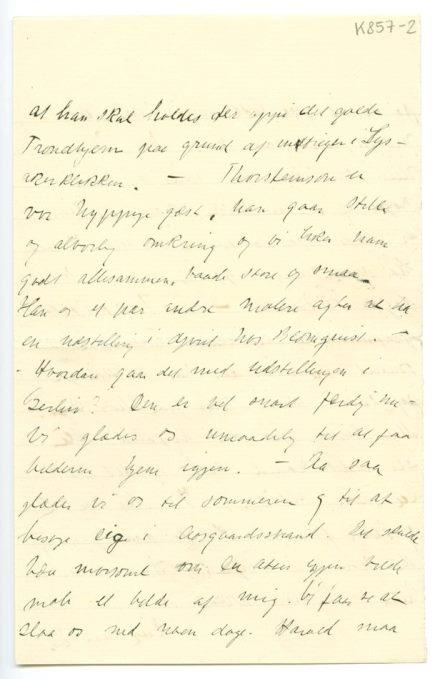 K857-2
at han skal holdes der oppe i det golde
Trondhjem paa grund af intriger i Lys-
akerklikken. — Thorsteinson er
vor hyppige gæst, han gaar stille
og alvorlig omkring og vi liker ham
godt allesammen, baade store og smaa.
Han og et par andre malere agter at ha
en udstilling i april hos Blomquist. —
- Hvordan gaar det med udstillingen i
Berlin? Den er vel snart færdig nu -
Vi glæder os umaadelig til at faa
billederne hjem igjen. — Og saa
glæder vi os til sommeren og til at
besøge Dig i Aasgaardsstrand. Det skulde
bli morsomt om Du atter igjen vilde
male et billede af mig. Vi faar se at
slaa os ned noen dage. Harald maa